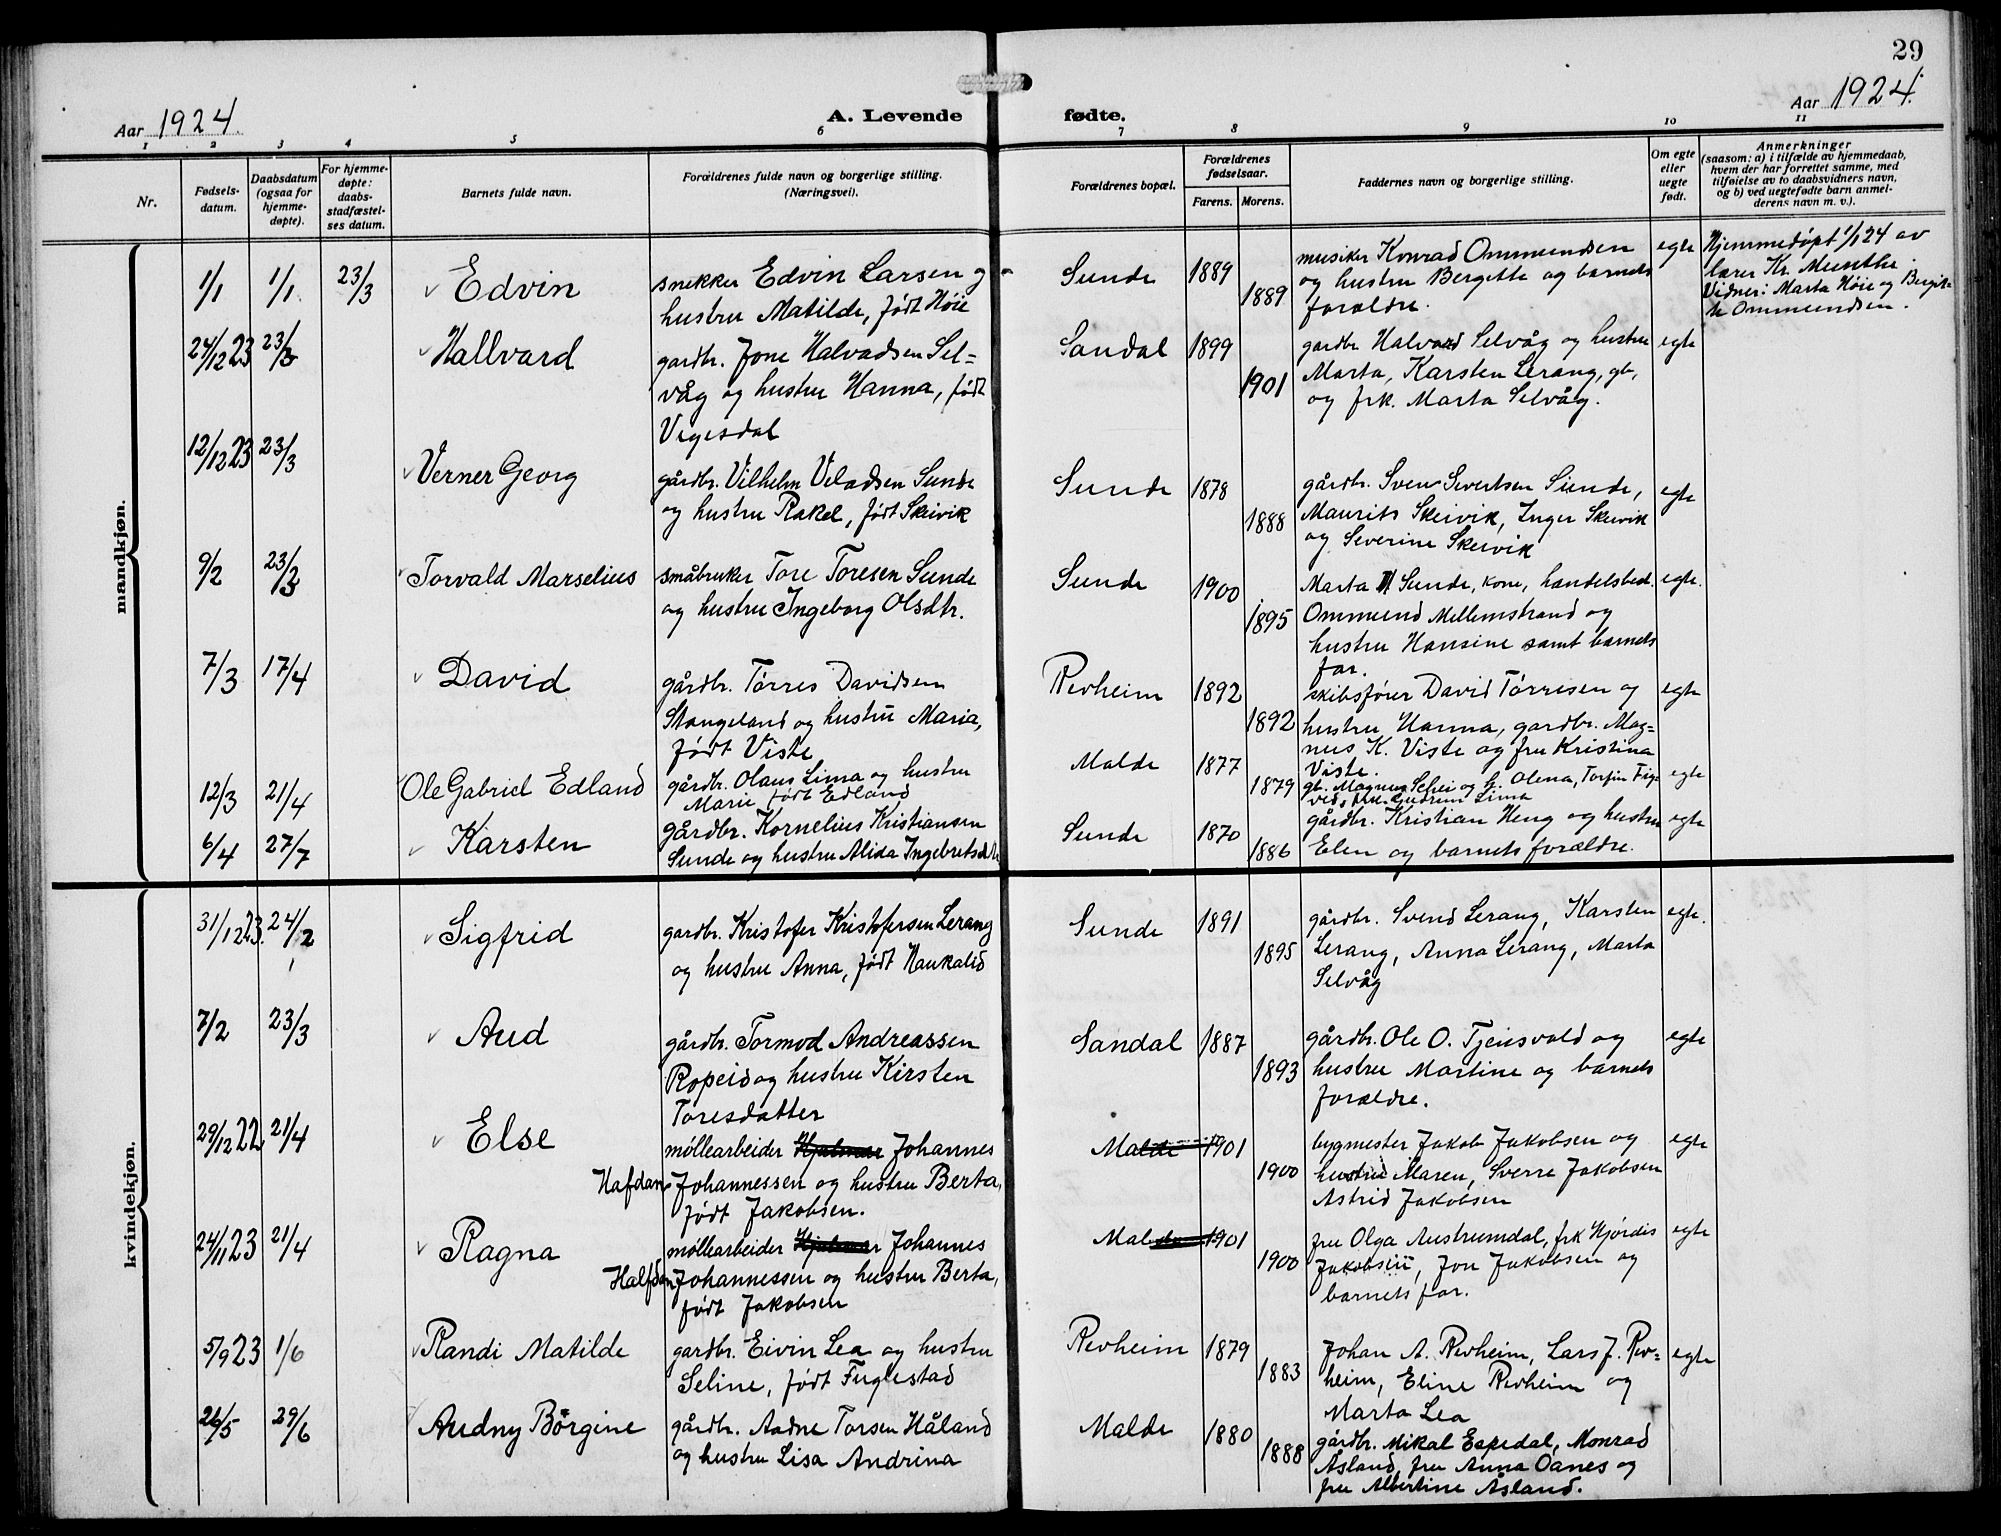 29
Aar 1924.
A. Levende fødte.
Aar 1924.
1 2 3 4 5 6 7 8 9 10 11
Nr.
Fødsels-
datum.
Daabsdatum
(ogsaa for
hjemme-
døpte).
For hjemme-
døpte:
daabs-
stadfæstel-
ses datum.
Barnets fulde navn.
Forældrenes fulde navn og borgerlige stilling.
(Næringsvei).
Forældrenes bopæl.
Forældrenes
fødselsaar.
Farens. Morens.
Faddernes navn og borgerlige stilling.
Om egte
eller
uegte
født.
Anmerkninger
(saasom: a) i tilfælde av hjemmedaab,
hvem der har forrettet samme, med
tilføielse av to daabsvidners navn,
og b) ved uegtefødte barn anmel-
derens navn m. v.).
mandkjøn.
1/1 1/1 23/3 Edvin
snekker Edvin Larsen og
hustru Matilde, født Høie
Sunde 1889 1889
musiker Konrad Ommundsen
og hustru Bergitte og barnets
forældre.
egte
Hjemmedøpt 1/1 24 av
lærer Kr. Munthe.
Vidner: Marta Høie og Bergit-
te Ommundsen.
24/12 23 23/3 Hallvard
gardbr. Jone Halvadsen Sel=
våg og hustru Hanna, født
Vigesdal
Sandal 1899 1901
gardbr Halvard Selvåg og hustru
Marta, Karsten Lerang, gb,
og frk. Marta Selvåg.
egte
12/12 23 23/3 Verner Georg
gårdbr. Vilhelm Veladsen Sunde
og hustru Rakel, født Skeivik
Sunde 1878 1888
gårdbr. Sven Severtsen Sunde,
Maurits Skeivik, Inger Skeivik
og Severine Skeivik
egte
9/2 23/3 Torvald Marselius
småbruker Tore Toresen Sunde
og hustru Ingeborg Olsdtr.
Sunde 1900 1895
Marta Sunde, kone, handelsbed.
Ommund Mellemstrand og
hustru Hansine samt barnets
far.
egte.
7/3 17/4 David
gårdbr. Tørres Davidsen
Stangeland og hustru Maria,
født Viste
Revheim 1892 1892
skibsfører David Tørresen og
hustru Hanna, gardbr. Mag=
nus K. Viste og fru Kristina
Viste.
egte
12/3 21/4 Ole Gabriel Edland
gårdbr. Olaus Lima og hustru
Marie født Edland
Malde 1877 1879
gb. Magnus Schei og h. Olena, Torfin Fig=
ved, fru Gudrun Lima
egte
6/4 27/7 Karsten
gårdbr. Kornelius Kristiansen
Sunde og hustru Alida Ingebretsdtr
Sunde 1870 1886
gårdbr. Kristian Heng og hustru
Elen og barnets forældre.
egte
kvindekjøn.
31/12 23. 24/2 Sigfrid
gardbr. Kristofer Kristofersen Lerang
og hustru Anna, født Haukalid
Sunde 1891 1895
gårdbr. Svend Lerang, Karsten
Lerang, Anna Lerang, Marta
Selvåg
egte.
7/2 23/3 Aud
gårdbr. Tormod Andreassen
Ropeid og hustru Kirsten
Toresdatter
Sandal 1887 1893
gårdbr. Ole O. Tjensvold og
hustru Martine og barnets
forældre.
egte
29/12 22 21/4 Else
møllearbeider Hjalmar Johannes
Hafdan Johannessen og hustru Berta,
født Jakobsen.
Malde 1901 1900
bygmester Jakob Jakobsen og
hustru Maren, Sverre Jakobsen
Astrid Jakobsen
egte
24/11 23 21/4 Ragna
møllearbeider Hjalmar Johannes
Halfdan Johannessen og hustru Berta,
født Jakobsen
Malde 1901 1900
fru Olga Austrumdal, frk Hjørdis
Jakobsen, Jon Jakobsen og
barnets far.
egte
5/9 23 1/6 Randi Matilde
gardbr. Eivin Lea og hustru
Seline, født Fuglestad
Revheim 1879 1883
Johan A. Revheim, Lars J. Rev=
heim, Eline Revheim og
Marta Lea
egte
26/5 29/6 Audny Børgine
gårdbr. Aadne Torsen Håland
og hustru Lisa Andrina
Malde 1880 1888
gårdbr. Mikal Espedal, Monrad
Åsland, fru Anna Oanes og
fru Albertine Åsland.